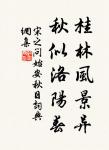 桂林風景異
秋似洛陽春
宋之問始安秋日詞典
網集